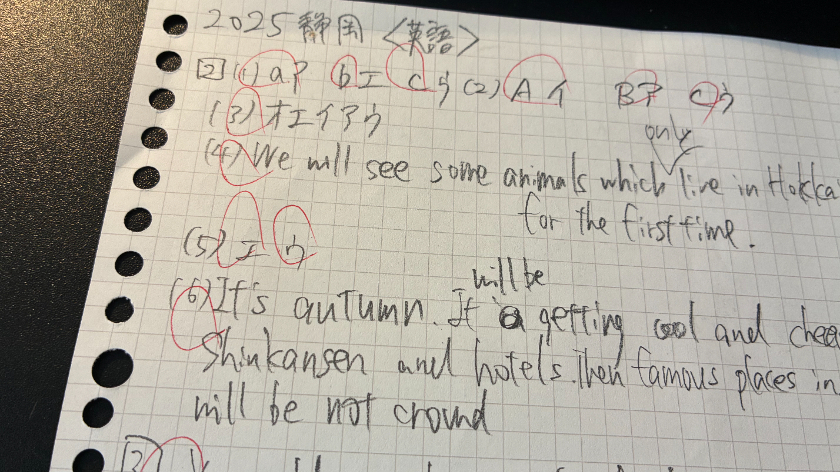 2025 静岡 〈英語〉
[2] (1) a ア b エ c ウ (2) A イ B ア C ウ
(3) オ エ イ ア ウ
only
(4) We will see some animals which live in Hokka
for the first time.
(5) エ ウ
will be
(6) It's autumn. It getting cool and chea
Shinkansen and hotels. Then famous places in
will be not crowd